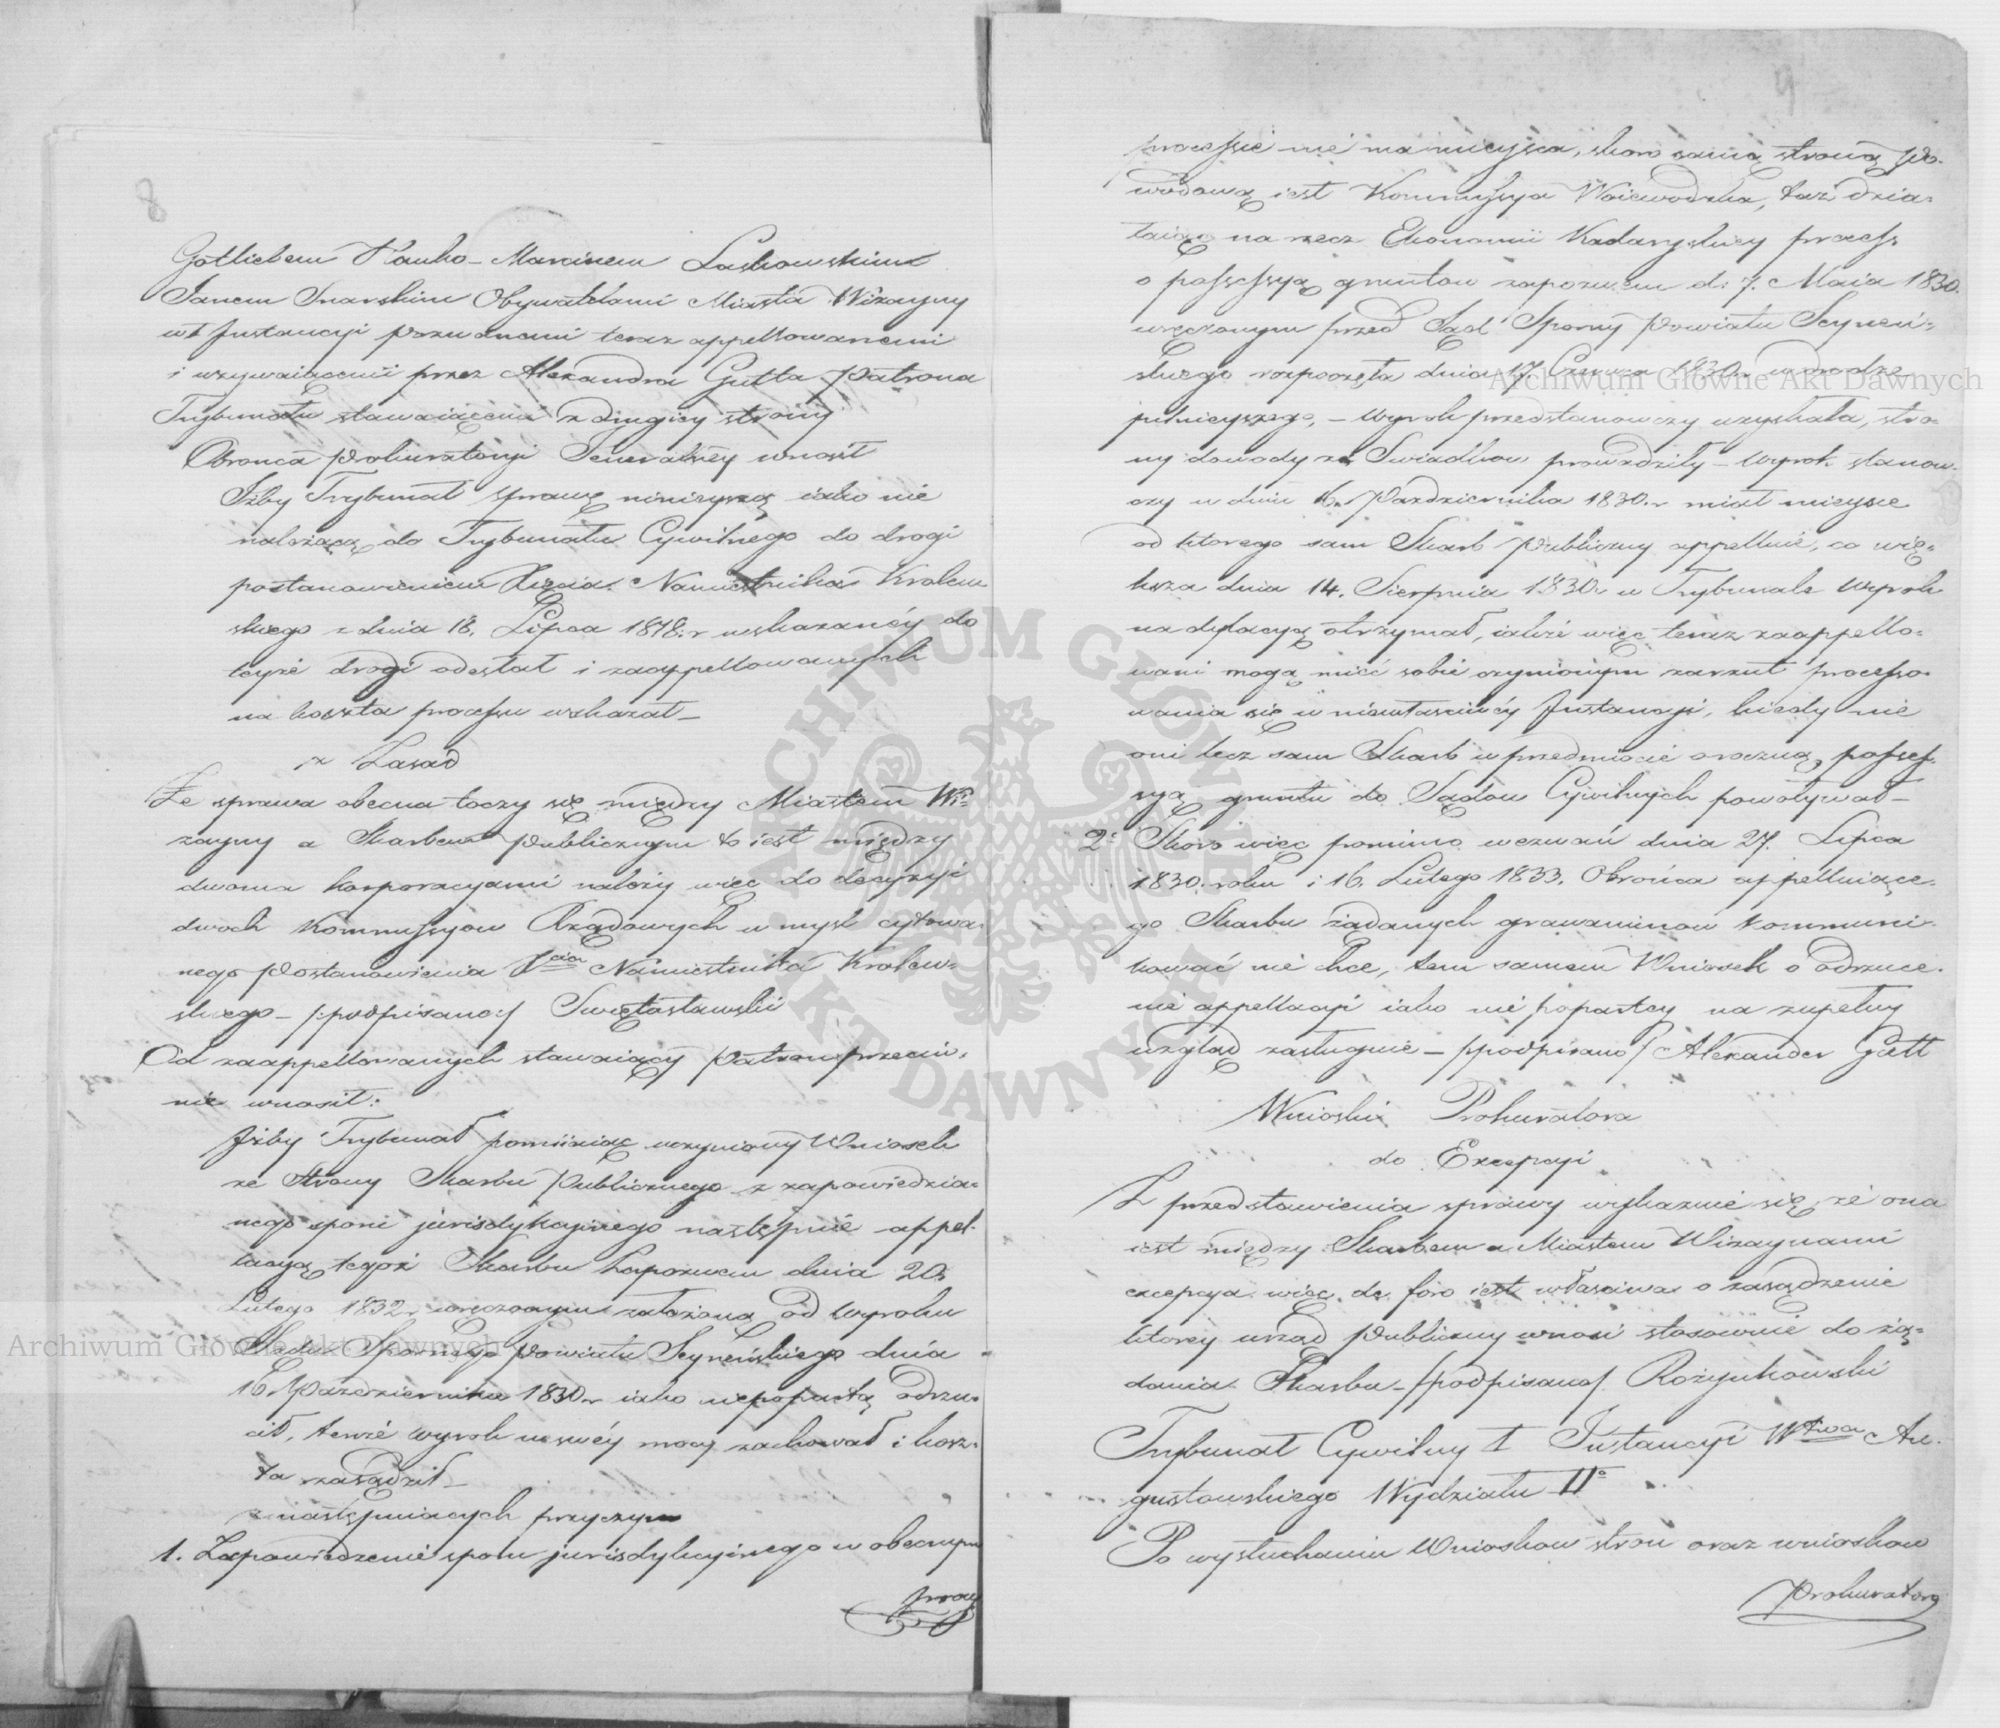 8
Gottliebem Hanko – Marcinem Laskowskim
Janem Snarskim Obywatelami Miasta Wizayny
w I Instancyi pozwanemi teraz appellowanemi
i wzywaiącemi przez Alexandra Gutta Patrona
Trybunału stawaiącemi z drugiey strony
Obronca Prokuratoryi Jeneralney wnosił
Iżby Trybunał sprawę ninieyszą iako nie
należącą do Trybunału Cywilnego do drogi
postanowieniem Xięcia Namiestnika Krolew
skiego z dnia 18. Lipca 1818. r wskazanéy do
teyże drogi odesłał i zaappellowanych
na koszta processu wskazał –
z Zasad
Że sprawa obecna toczy się między Miastem Wi-
zayny a Skarbem Publicznym to iest między
dwoma korporacyami należy więc do decyzyi
dwoch Kommissyow Rządowych w myśl cytowa-
nego Postanowienia Xcia Namiestnika Krolew-
skiego – /:podpisano:/ Swiętosławski
Od zaappellowanych stawaiący Patron przeciw-
nie wnosił:
Iżby Trybunał pomiiaiąc uczyniony Wniosek
ze strony Skarbu Publicznego z zapowiedzia-
nego sporu jurisdykcyinego następnie appel-
lacyą tegoż Skarbu Zapozwem dnia 20.
Lutego 1832 r. wręczonym założoną od wyroku
Sądu Spornego Powiatu Seyneńskiego dnia
16. Października 1830 r iako niepopartą odrzu-
cił, tenże wyrok w swéy mocy zachował i kosz-
ta zasądził –
z następuiących przyczyn
1. Zapowiedzenie sporu jurisdykcyinego w obecnym
procy
9
processie nie ma mieysca, skoro samą stroną Po-
wodową iest Kommissya Woiewodzka, taż dzia-
łaiąc na rzecz Ekonomii Kadaryskiey process
o possessyą gruntow zapozwem d: 7. Maia 1830.
wręczonym przed Sąd Sporny Powiatu Seyneń-
skiego rozpoczęta dnia 17. Czerwca 1830 r. w drodze
pilnieyszego, – wyrok przedstanowczy uzyskała, stro-
ny dowody ze Swiadkow prowadziły – Wyrok stanow-
czy w dniu 16. Października 1830. r miał mieysce
od ktorego sam Skarb Publiczny appelluie, co wię-
ksza dnia 14. Sierpnia 1830 r w Trybunale Wyrok
na dylacyą otrzymał, iakże więc teraz zaappello-
wani mogą mieć sobie czynionym zarzut processo-
wania się w niewłasciwéy Instancyi, kiedy nie
oni lecz sam Skarb w przedmiocie possess-
syą gruntu do Sądow Cywilnych powoływał –
2° Skoro więc pomimo wezwań dnia 27. Lipca
1830. roku i 16. Lutego 1833. Obrońca appelluiące-
go Skarbu żądanych grawaminow kommuni-
kować nie chce, tem samem Wniosek o odrzuce-
nie appellacyi iako nie popartey na zupełny
wzgląd zasługuie – /podpisano/ Alexander Gutt
Wnioski Prokuratora
do Excepcyi
Z przedstawienia sprawy wykazuie się, że ona
iest między Skarbem a Miastem Wizaynami
excepcya więc de foro iest własciwa o zasądzenie
ktorey urząd Publiczny wnosi stosownie do żą-
dania Skarbu – /podpisano/ Rożynkowski
Trybunał Cywilny I Instancyi Wtwa Au-
gustowskiego Wydziału II°
Po wysłuchaniu Wniosków stron oraz wniosków
Prokuratora
Archiwum Główne Akt Dawnych
Archiwum Główne Akt Dawnych
ARCHIWUM GŁÓWNE AKT DAWNYCH